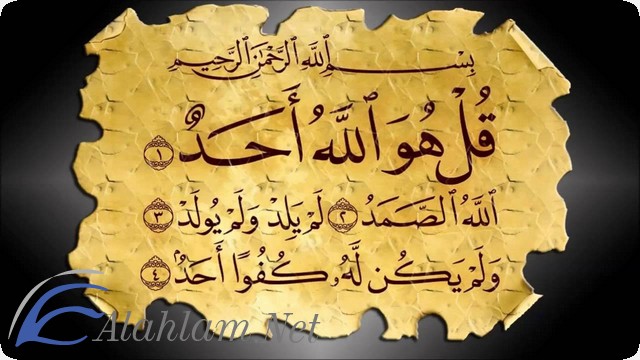 بِسْمِ ٱللَّهِ ٱلرَّحْمَٰنِ ٱلرَّحِيمِ
قُلْ هُوَ ٱللَّهُ أَحَدٌ ١
ٱللَّهُ ٱلصَّمَدُ ٢ لَمْ يَلِدْ وَلَمْ يُولَدْ ٣
وَلَمْ يَكُن لَّهُۥ كُفُوًا أَحَدٌۢ ٤
Alahlam.Net